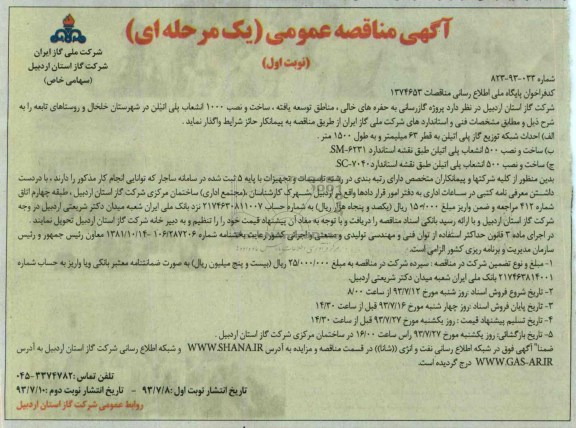 آگهی مناقصه عمومی (یک مرحله ای)
(نوبت اول)
شرکت ملی گاز ایران
شرکت گاز استان اردبیل
(سهامی خاص)
شماره ۰۳۳-۹۳-۸۲۳
کدفراخوان پایگاه ملی اطلاع رسانی مناقصات ۱۳۷۴۶۵۳
شرکت گاز استان اردبیل در نظر دارد پروژه گازرسانی به حفره های خالی ، مناطق توسعه یافته ، ساخت و نصب ۱۰۰۰ انشعاب پلی اتیلن در شهرستان خلخال و روستاهای تابعه را به
شرح ذیل و مطابق مشخصات فنی و استاندارد های شرکت ملی گاز ایران از طریق مناقصه به پیمانکار حائز شرایط واگذار نماید .
الف) احداث شبکه توزیع گاز پلی اتیلن به قطر ۶۳ میلیمتر و به طول ۱۵۰۰ متر .
ب) ساخت و نصب ۵۰۰ انشعاب پلی اتیلن طبق نقشه استاندارد SM-۶۲۳۱
ج) ساخت و نصب ۵۰۰ انشعاب پلی اتیلن طبق نقشه استاندارد SC-۷۰۴۰
بدین منظور از کلیه شرکتها و پیمانکاران متخصص دارای رتبه بندی در رشته تاسیسات و تجهیزات با پایه ۵ ثبت شده در سامانه ساجار که توانایی انجام کار مذکور را دارند ، با در دست
داشتن معرفی نامه کتبی در ساعات اداری به دفتر امور قرار دادها واقع در اردبیل شهرک کارشناسان ،(مجتمع اداری) ساختمان مرکزی شرکت گاز استان اردبیل ، طبقه چهارم اتاق
شماره ۴۱۲ مراجعه و ضمن واریز مبلغ ۱۵۰/۰۰۰ ریال (یکصد و پنجاه هزار ریال) به شماره حساب ۲۱۷۴۶۳۰۸۱۱۰۰۷ نزد بانک ملی ایران شعبه میدان دکتر شریعتی اردبیل در وجه
شرکت گاز استان اردبیل و با ارائه رسید بانکی اسناد مناقصه را دریافت و با توجه به مفاد آن پیشنهاد قیمت خود را را تنظیم و به دبیر خانه شرکت گاز استان اردبیل تحویل نمایند .
در اجرای ماده ۳ قانون حداکثر استفاده از توان فنی و مهندسی تولیدی و صنعتی و اجرائی کشور رعایت بخشنامه شماره ۱۰۶/۲۸۷۲۰۶ -۱۳۸۱/۱۰/۱۴ معاون رئیس جمهور و رئیس
سازمان مدیریت و برنامه ریزی کشور الزامی است .
۱- مبلغ و نوع تضمین شرکت در مناقصه : سپرده شرکت در مناقصه به مبلغ ۲۵/۰۰۰/۰۰۰ ریال (بیست و پنج میلیون ریال) به صورت ضمانتنامه معتبر بانکی ویا واریز به حساب شماره
۲۱۷۴۶۳۸۱۴۰۰۱ بانک ملی ایران شعبه میدان دکتر شریعتی اردبیل.
۲- تاریخ شروع فروش اسناد :روز شنبه مورخ ۹۳/۷/۱۲ از ساعت ۸/۰۰
۳- تاریخ پایان فروش اسناد :روز چهار شنبه مورخ ۹۳/۷/۱۶ قبل از ساعت ۱۴/۳۰
۴- تاریخ تسلیم پیشنهاد قیمت : روز یکشنبه مورخ ۹۳/۷/۲۷ قبل از ساعت ۱۴/۳۰
۵- تاریخ بازگشائی: روز یکشنبه مورخ ۹۳/۷/۲۷ راس ساعت ۱۶/۰۰ در ساختمان مرکزی شرکت گاز استان اردبیل .
ضمنا" آگهی فوق در شبکه اطلاع رسانی نفت و انرژی ((شانا)) در قسمت مناقصه و مزایده به آدرس WWW.SHANA.IR و شبکه اطلاع رسانی شرکت گاز استان اردبیل به آدرس
WWW.GAS-AR.IR درج گردیده است.
تلفن تماس: ۳۳۷۴۷۸۲-۰۴۵
تاریخ انتشار نوبت اول :۹۳/۷/۸ - تاریخ انتشار نوبت دوم :۹۳/۷/۱۰
روابط عمومی شرکت گاز استان اردبیل